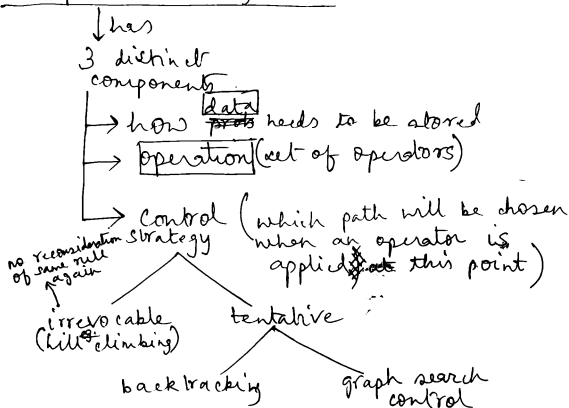 has
3 distinct
components
data
how needs to be stored
operation (set of operators)
control (which path will be chosen
strategy when an operator is
applied, this point)
no reconsideration
of same rule
again
irrevocable
(hill climbing)
eg.
tentative
backtracking
graph search
control